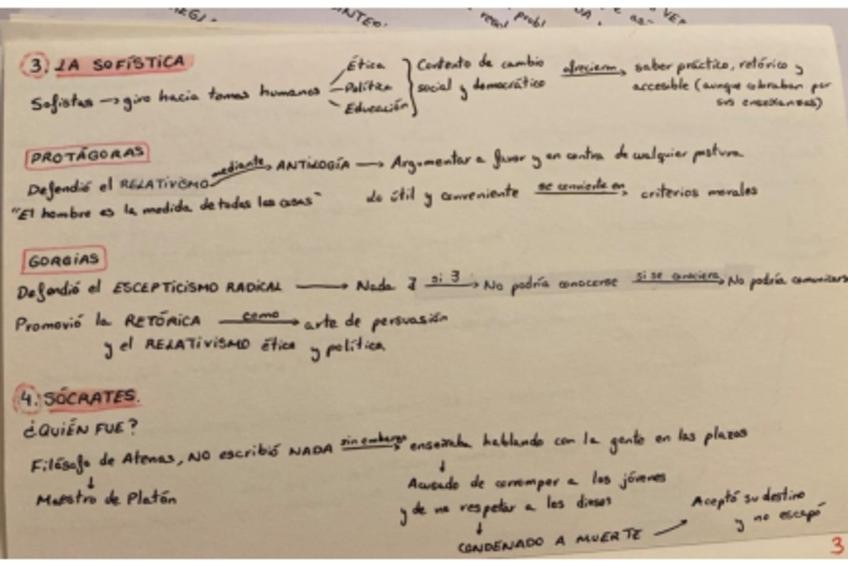 3. LA SOFÍSTICA
Sofistas → giro hacia temas humanos
Ética
Política
Educación
Contexto de cambio
social y democrático
ofrecieron → saber práctico, retórico y
accesible (aunque cobraban por
sus enseñanzas)
PROTÁGORAS
Defendió el RELATIVISMO mediante → ANTILOGÍA → Argumentar a favor y en contra de cualquier postura
"El hombre es la medida de todas las cosas"
Lo útil y conveniente se convierte en → criterios morales
GORGIAS
Defendió el ESCEPTICISMO RADICAL → Nada ∃ si ∃ → No podría conocerse si se conociera → No podría comunicarse
Promovió la RETÓRICA como → arte de persuasión
y el RELATIVISMO ética y política
4. SÓCRATES.
¿QUIÉN FUE?
Filósofo de Atenas, NO escribió NADA sin embargo → enseñaba hablando con la gente en las plazas
↓
Maestro de Platón
↓
Acusado de corromper a los jóvenes
y de no respetar a los dioses
↓
CONDENADO A MUERTE →
Aceptó su destino
y no escapó
3